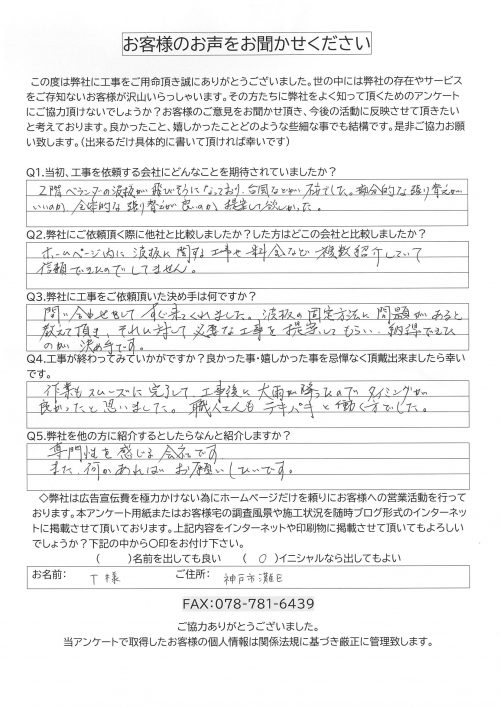 お客様のお声をお聞かせください
この度は弊社に工事をご用命頂き誠にありがとうございました。世の中には弊社の存在やサービス
をご存知ないお客様が沢山いらっしゃいます。その方たちに弊社をよく知って頂くためのアンケート
にご協力頂けないでしょうか?お客様のご意見をお聞かせ頂き、今後の活動に反映させて頂きたい
と考えております。良かったこと、嬉しかったことどのような些細な事でも結構です。是非ご協力お願
い致します。（出来るだけ具体的に書いて頂ければ幸いです）
Q1.当初、工事を依頼する会社にどんなことを期待されていましたか?
2階ベランダの波板が飛びそうになっており、台風などが不安でした。部分的な張り替えが
いいのか、全体的な張り替えが良いのか提案して欲しかった。
Q2.弊社にご依頼頂く際に他社と比較しましたか?した方はどこの会社と比較しましたか?
ホームページ内に波板に関する工事や料金など複数紹介していて
信頼できたのでしてません。
Q3.弊社に工事をご依頼頂いた決め手は何ですか?
問い合わせをしてすぐ来てくれました。波板の固定方法に問題があると
教えて頂き、それに対して必要な工事を提案してもらい、納得できた
のが決め手です。
Q4.工事が終わってみていかがですか?良かった事・嬉しかった事を忌憚なく頂戴出来ましたら幸い
です。
作業もスムーズに完了して、工事後に大雨が降ったのでタイミングが
良かったと思いました。職人さんもテキパキと働く方でした。
Q5.弊社を他の方に紹介するとしたらなんと紹介しますか?
専門性を感じる会社です
また、何かあればお願いしたいです。
◇弊社は広告宣伝費を極力かけない為にホームページだけを頼りにお客様への営業活動を行って
おります。本アンケート用紙またはお客様宅の調査風景や施工状況を随時ブログ形式のインターネッ
トに掲載させて頂いております。上記内容をインターネットや印刷物に掲載させて頂いてもよろしい
でしょうか?下記の中から〇印をお付け下さい。
（　）名前を出しても良い　（ 〇 ）イニシャルなら出してもよい
お名前: T様　ご住所: 神戸市灘区
FAX:078-781-6439
ご協力ありがとうございました。
当アンケートで取得したお客様の個人情報は関係法規に基づき厳正に管理致します。